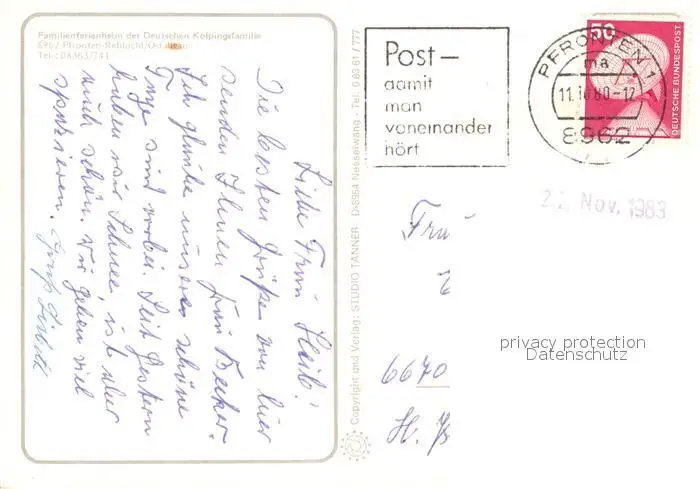 Familienferienheim der Deutschen Kolpingsfamilie
8962 Pfronten-Rehbichl/Ostallgäu
Tel.: 08363/741
Liebe Frau Heib!
Die besten Grüße von hier
senden Ihnen Frau Becker.
Ich glaube unsere schöne
Tage sind vorbei. Seit Gestern
haben wir Schnee, ist aber
auch schön. Wir gehen viel
spazieren. Gruß
Copyright und Verlag: STUDIO TANNER D-8964 Nesselwang - Tel. 0 83 61 / 777
Post-
damit
man
voneinander
hört
PFRONTEN 1
ma
-17
8962
50
DEUTSCHE BUNDESPOST
Nov. 1983
Frau
6670
privacy protection
Datenschutz